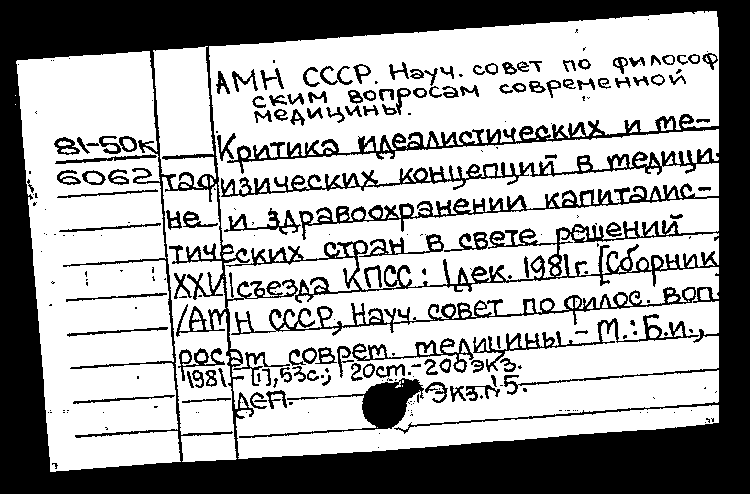 АМН СССР. Науч. совет по философ
ским вопросам современной
медицины.
81-50к
6062
Критика идеалистических и ме-
тафизических концепций в медици-
не и здравоохранении капиталис-
тических стран в свете решений
XXVI съезда КПСС: 1 дек. 1981г. [Сборник
/АМН СССР, Науч. совет по филос. воп-
росам соврем. медицины. - М.: Б.и.,
1981. - [1], 53с.; 20см. - 200 экз.
Деп. Экз. №5.